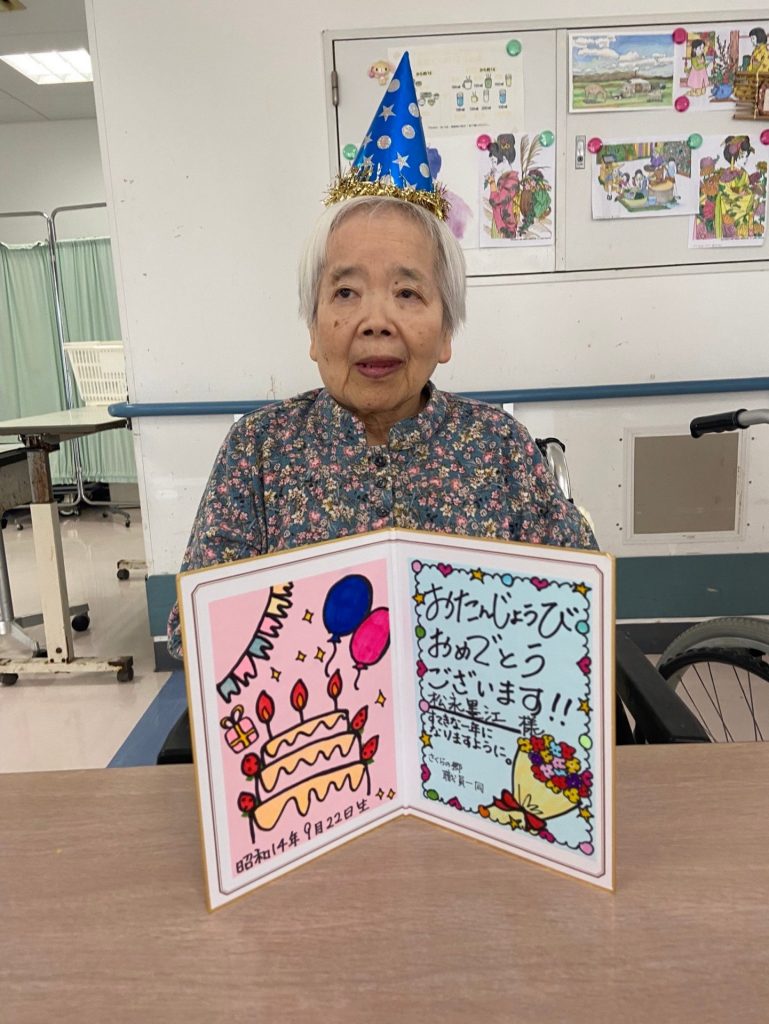 昭和14年9月22日生
おたんじょうび
おめでとう
ございます!!
松永里江 様
すてきな一年に
なりますように。
さくらの郷
職員一同